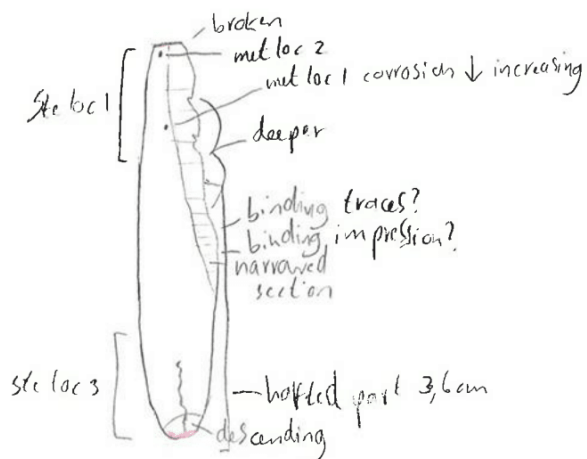 broken
met loc 2
met loc 1 corrosion ↓ increasing
ste loc 1
deeper
binding traces?
binding impression?
narrowed
section
ste loc 3
hafted part 3,6 cm
descending